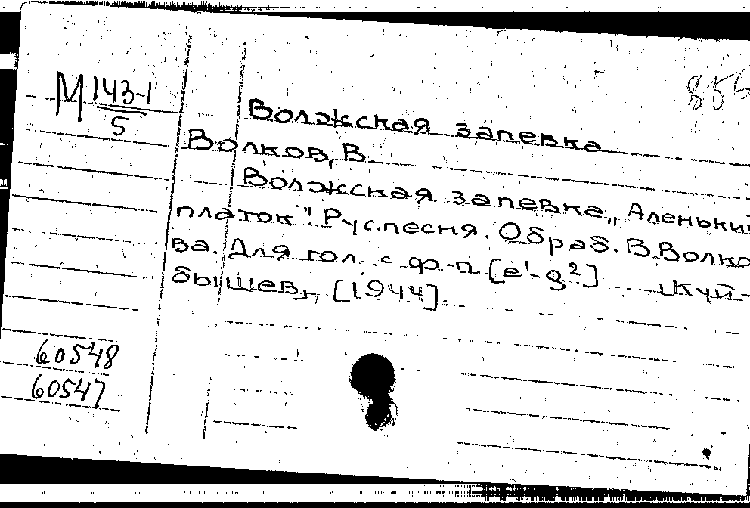 855
М 143-1
5
Волжская запевка
Волков, В.
Волжская запевка „Аленьки
платок" Рус. песня. Обраб. В. Волко-
ва. Для гол. с ф-п. [e¹-g²] Куй-
бышев, [1944].
60548
60547